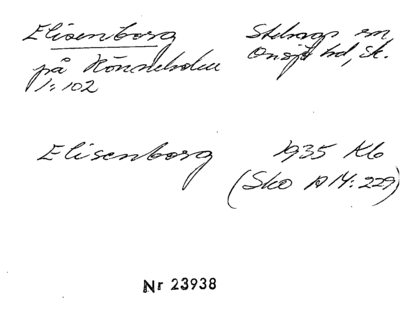 Elisenborg
på Rönneholm
1:102
Stehags sn
Onsjö hd, Sk.
Elisenborg 1935 Kb
(Sko A 14:229)
Nr 23938